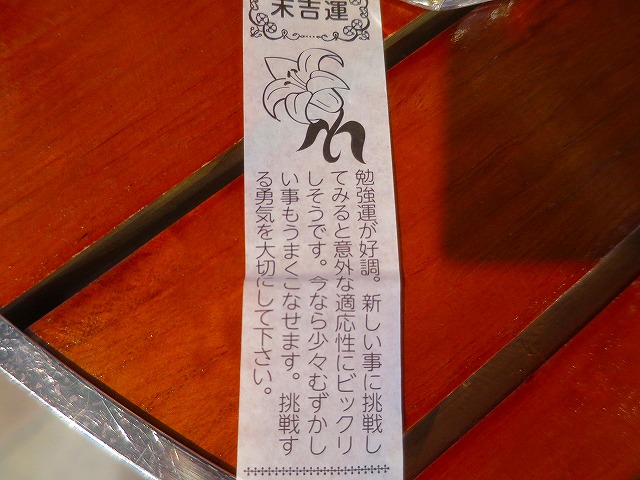 末吉運
勉強運が好調。新しい事に挑戦し
てみると意外な適応性にビックリ
しそうです。今なら少々むずかし
い事もうまくこなせます。挑戦す
る勇気を大切にして下さい。